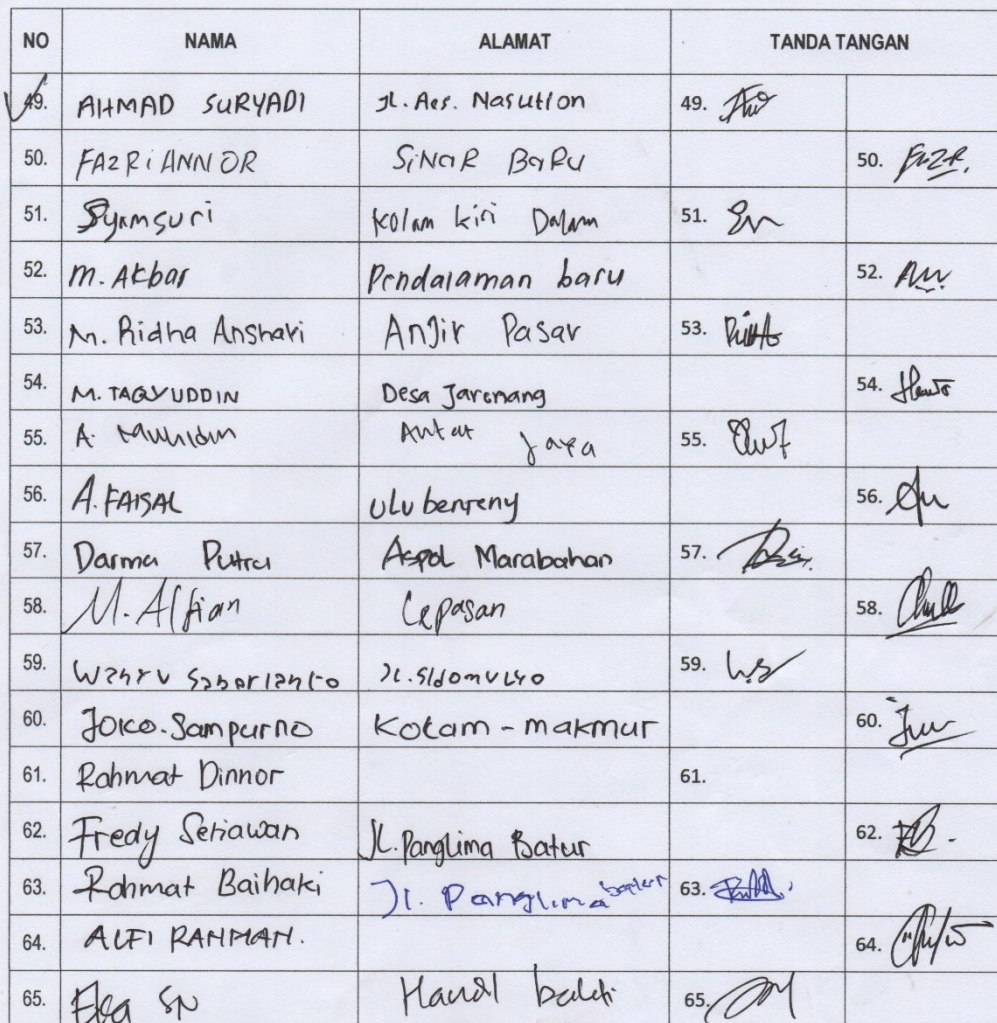 NO NAMA ALAMAT TANDA TANGAN
49. AHMAD SURYADI Jl. Aes. Nasution 49.
50. FAZRIANNOR SINAR BARU 50. FAZR.
51. Syamsuri Kolam kiri Dalam 51.
52. M. Akbar Pendalaman baru 52.
53. M. Ridha Anshari Anjir Pasar 53.
54. M. TAQYUDDIN Desa Jarenang 54.
55. A. Antar Jaya 55.
56. A. FAISAL Ulu benteng 56.
57. Darma Putra Aspol Marabahan 57.
58. M. Alfian Lepasan 58.
59. Wahyu Sabarianto Jl. Sidomulyo 59. WS
60. Joko. Sampurno Kolam - makmur 60.
61. Rahmat Dinnor 61.
62. Fredy Setiawan JL. Panglima Batur 62.
63. Rahmat Baihaki Jl. Panglima batur 63.
64. ALFI RAHMAN. 64.
65. SN Handil bakti 65.